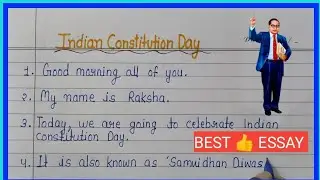 Indian Constitution Day
1. Good morning all of you.
2. My name is Raksha.
3. Today, we are going to celebrate Indian
constitution Day.
BEST 👍 ESSAY
4. It is also known as 'Samvidhan Diwas